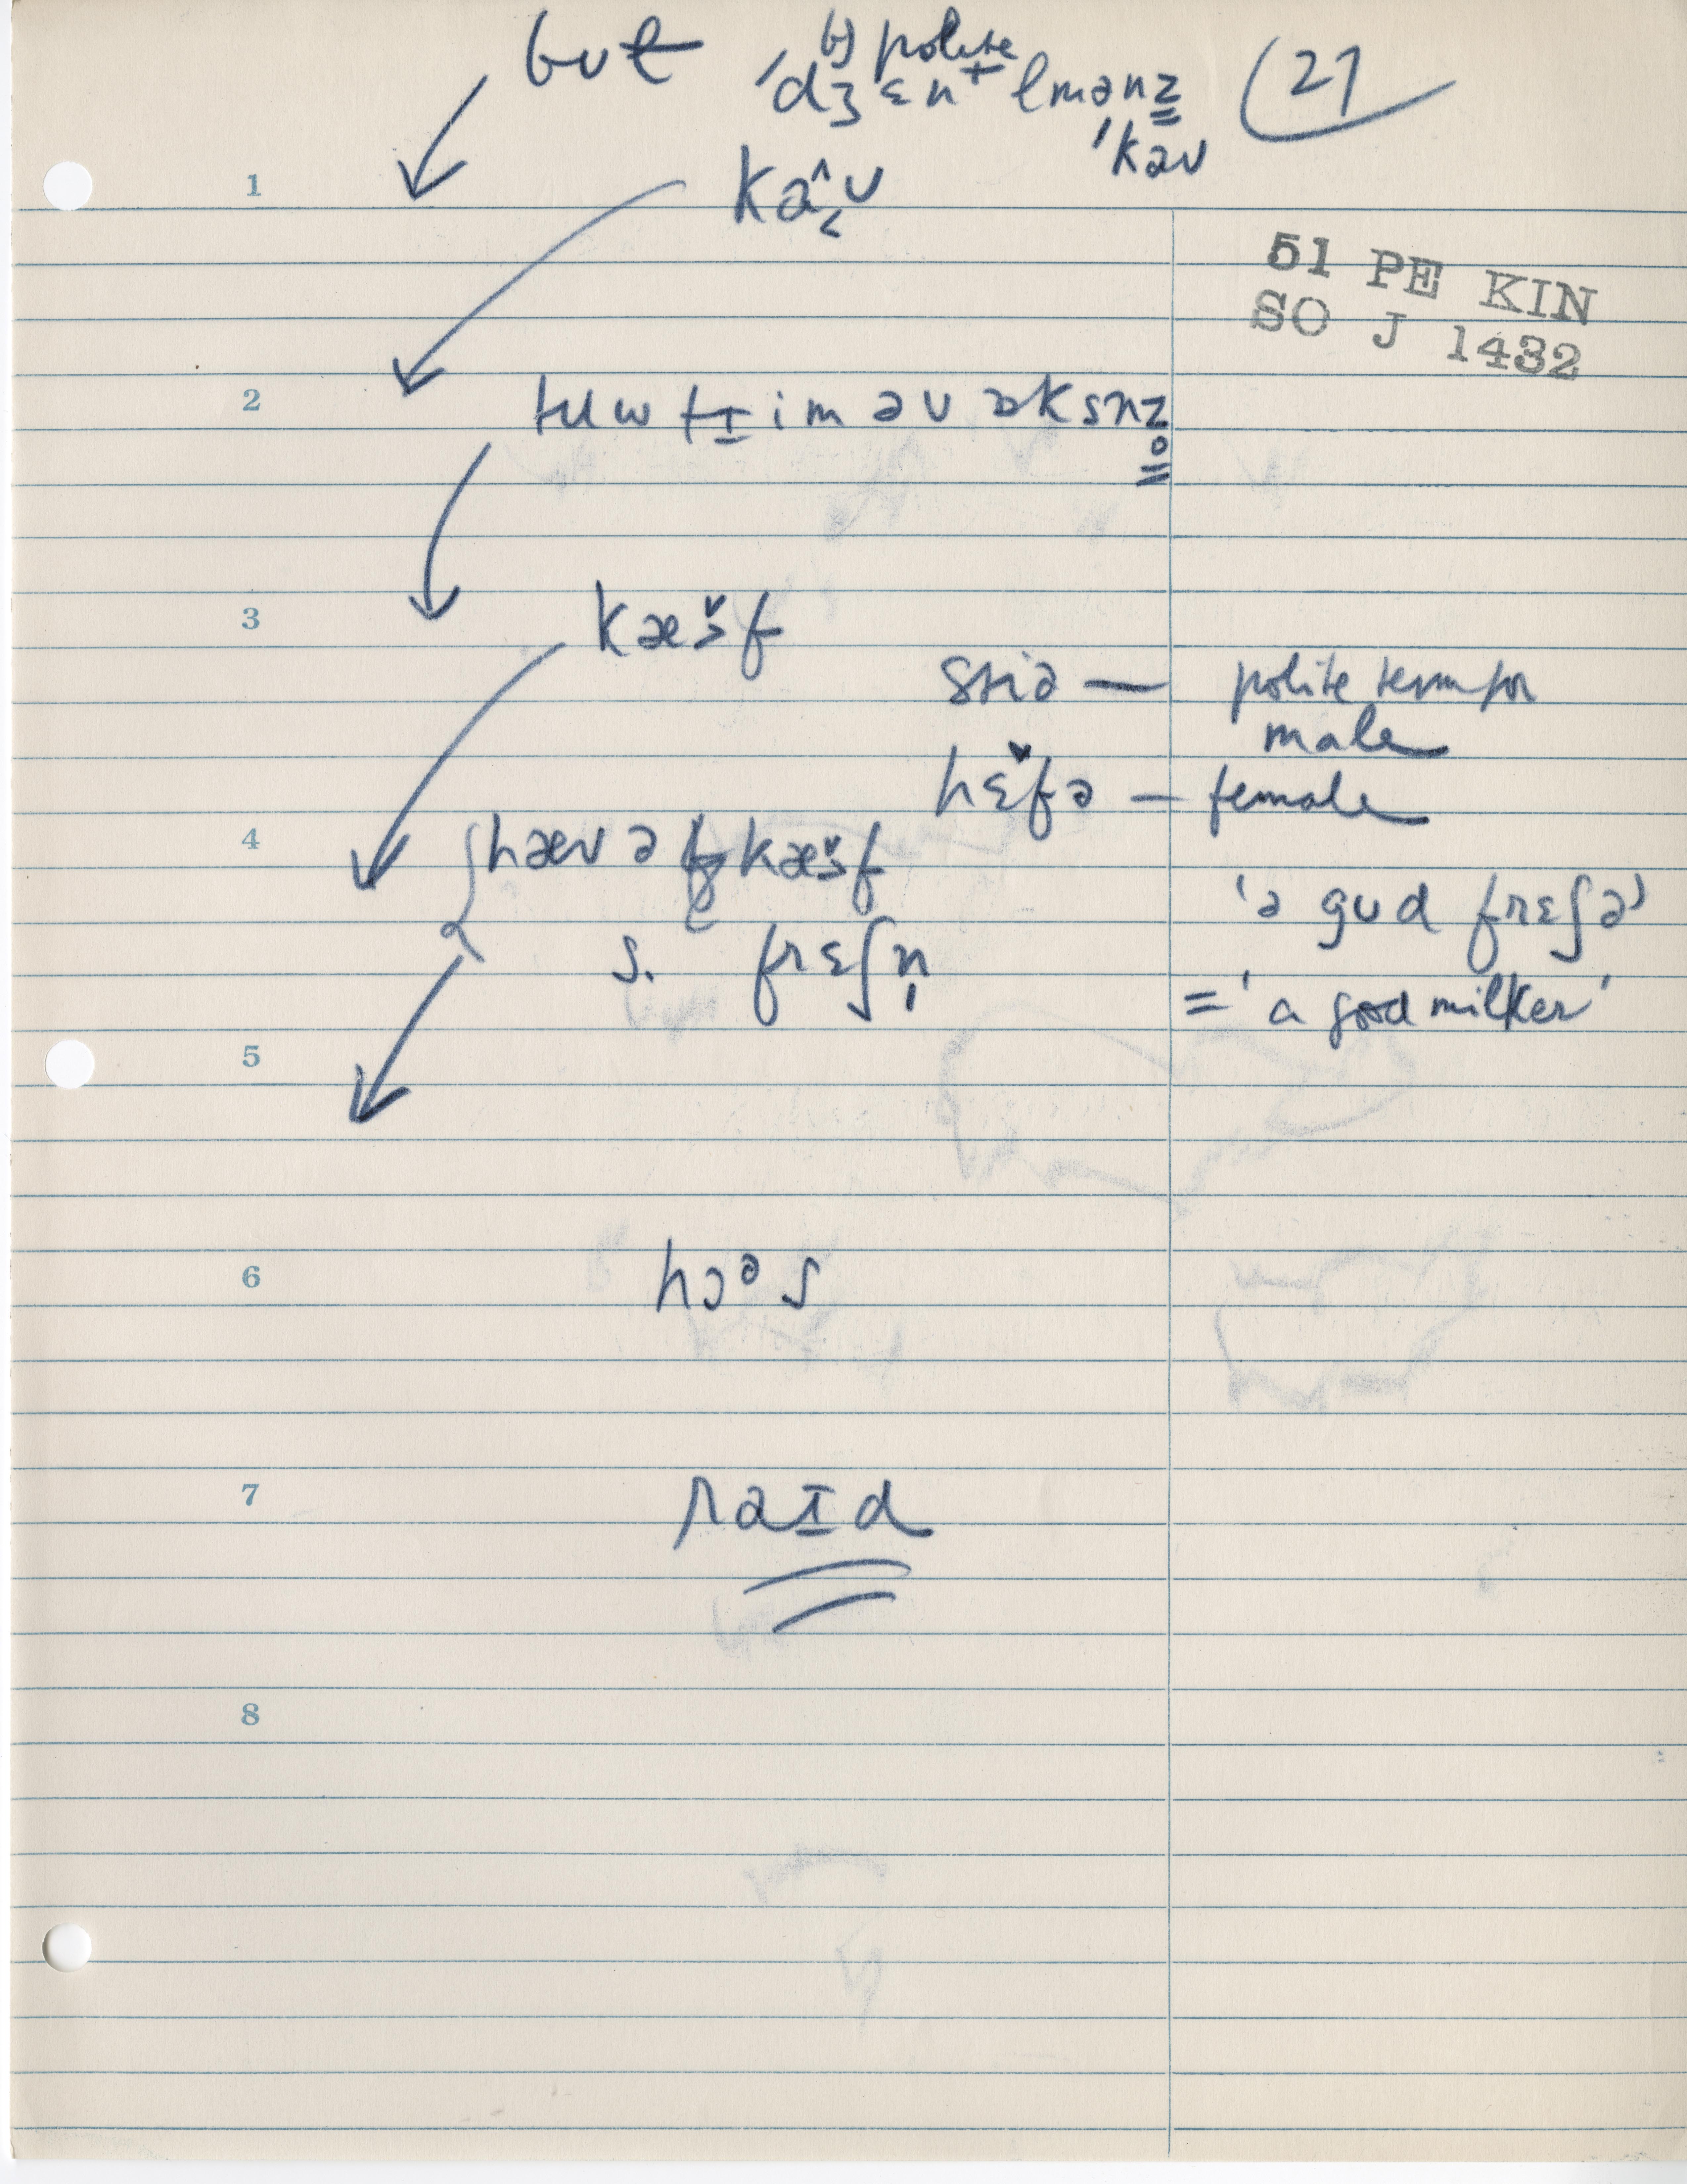 but b) polite 27
ˈdʒɛn+lmənz̳
ˈkaʊ
1 ka˄˂ʊ
51 PE KIN
SO J 1432
2 tɪim əv ɒksn̩z̥
3 kæ̌sf
stiə — polite term for
male
hɛ̌fə — female
4 hæv ə kæ̌sf
s. frɛʃn̩
'ə gʊd frɛʃə'
= 'a good milker'
5
6 hɔᵊs
7 raɪd
8